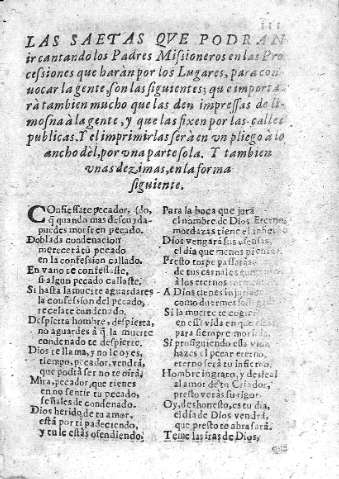 LAS SAETAS QVE PODRAN
ir cantando los Padres Missioneros en las Pro
cessiones que haràn por los Lugares, para con
uocar la gente, son las siguientes; que importa
rà tambien mucho que las den impressas de li-
mosna à la gente, y que las fixen por las calles
publicas. Y el imprimirlas serà en un pliego à lo
ancho dèl, por una parte sola. Y tambien
unas dezimas, en la forma
siguiente.
COnfiessate pecador,
q quando mas descuyda-
puedes morir en pecado. (do,
Doblada condenacion
merecerà tu pecado
en la confession callado.
En vano te confessaste,
si algun pecado callaste.
Si hasta la muerte aguardares
la confession del pecado,
recelate condenado.
Despierta hombre, despierta,
no aguardes à q la muerte
condenado te despierte.
Dios te llama, y no le oyes,
tiempo, pecador, vendrà,
que podrà ser no te oirà.
Mira, pecador, que tienes
en no sentir tu pecado,
señales de condenado.
Dios herido de tu amor,
està por ti padeciendo,
y tu le estàs ofendiendo.
Para la boca que jura
el nombre de Dios Eterno,
mordazas tiene el infierno.
Dios vengarà sus ofensas,
el dia que menos piensas.
Presto
de tus carnales
à los eternos
A Dios tienes
como duermes
Si la muerte te cogiera
en essa vida en que
para siempre
Si prosiguiendo essa vida
hazes el pecar eterno,
eterno serà tu infierno.
Hombre ingrato, y desleal
al amor de tu Criador,
presto veràs su rigor.
Oy, deshonesto, es tu dia,
el dia de Dios vendrà,
que presto te abrasarà.
Teme las iras de Dios,